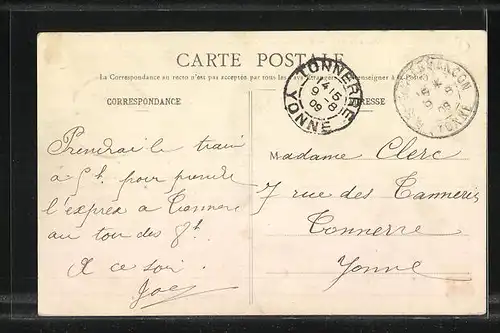 CARTE POSTALE
La Correspondance au recto n'est pas acceptée par tous les Pays Étrangers (Se renseigner à la Poste)
CORRESPONDANCE
ADRESSE
TONNERRE
4 15
9 - 8
09
YONNE
YONNE
Prendrai le train
à 5h pour prendre
l'express a Tonnerre
au tou des 8h
A ce soir
Madame Clerc
7 rue des Tanneries
Tonnerre
Yonne